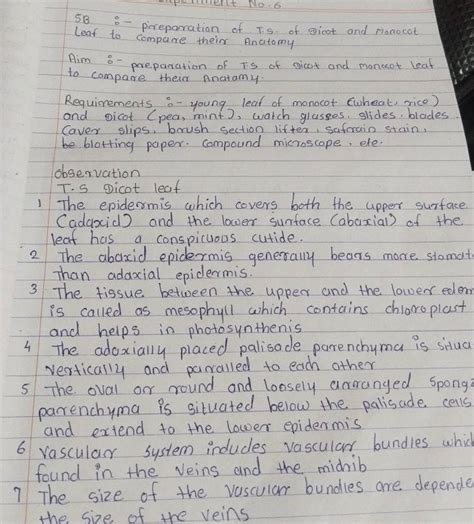 Experiment No. 6
5B :- preparation of T.S. of Dicot and Monocot
Leaf to compare their Anatomy
Aim :- preparation of T.S of Dicot and monocot leaf
to compare their Anatomy.
Requirements :- young leaf of monocot (wheat, rice)
and Dicot (pea, mint), watch glasses, slides, blades,
Caver slips, brush section lifter, safrain stain,
be blotting paper. compound microscope, etc.
observation
T.S Dicot leaf
1 The epidermis which covers both the upper surface
(adaxid) and the lower surface (abaxial) of the
leaf has a conspicuous cutide.
2 The abaxid epidermis generally bears more stomat
than adaxial epidermis.
3 The tissue between the upper and the lower
is called as mesophyll which contains chloroplast
and helps in photosynthenis
4 The adoxially placed palisade parenchyma is situa
vertically and parralled to each other
5 The oval or round and loosely arranged Spong
parenchyma is situated below the palisade cells
and extend to the lower epidermis
6 Vascular system includes vascular bundles whic
found in the veins and the midnib
7 The size of the vascular bundles are depende
the size of the veins